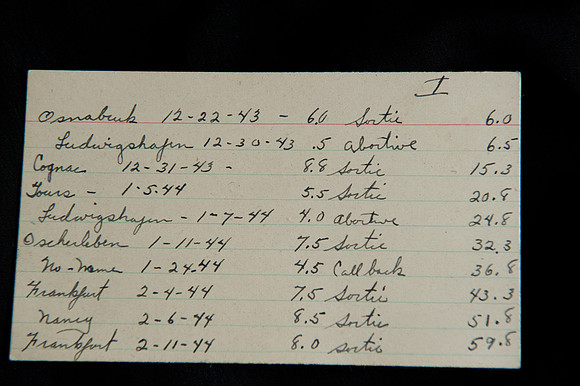 I
Osnabruk 12-22-43 - 6.0 Sortie 6.0
Ludwigshafen 12-30-43 .5 abortive 6.5
Cognac 12-31-43 - 8.8 Sortie 15.3
Tours - 1-5-44 5.5 Sortie 20.8
Ludwigshafen - 1-7-44 4.0 abortive 24.8
Oscherleben 1-11-44 7.5 Sortie 32.3
No-name 1-24-44 4.5 Call back 36.8
Frankfurt 2-4-44 7.5 Sortie 43.3
Nancy 2-6-44 8.5 Sortie 51.8
Frankfort 2-11-44 8.0 sortie 59.8